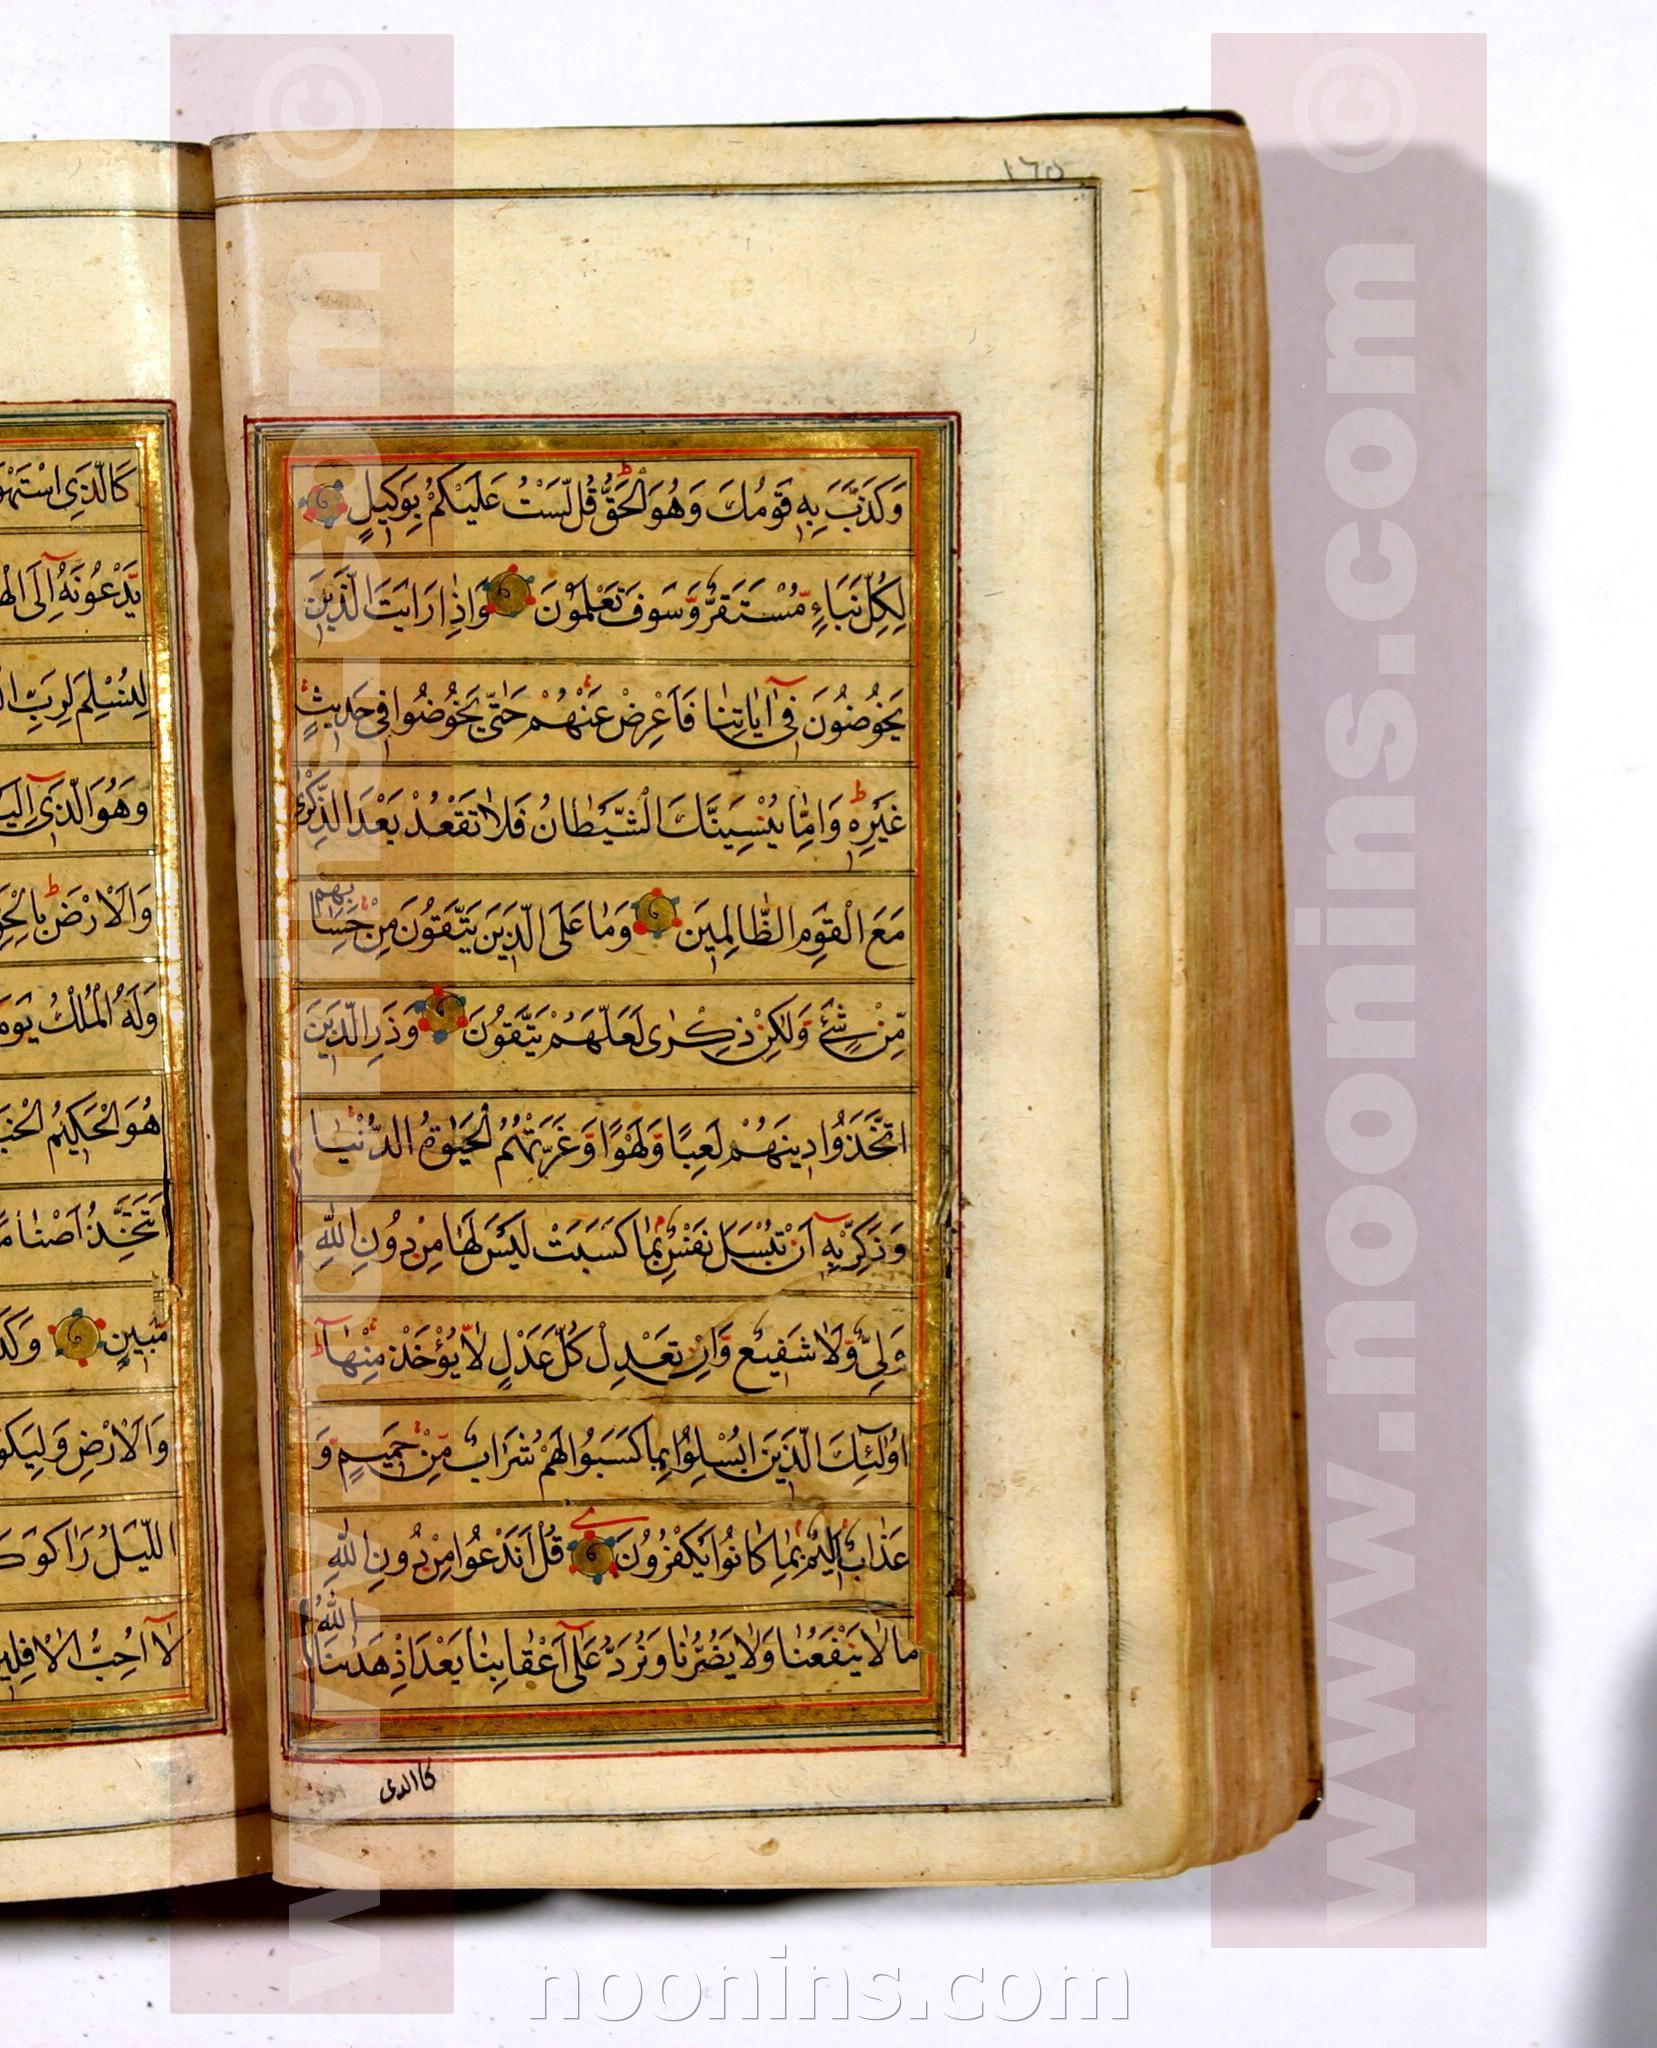 ١٦٥
وَكَذَّبَ بِهِ قَوْمُكَ وَهُوَ الْحَقُّ قُلْ لَسْتُ عَلَيْكُمْ بِوَكِيلٍ
لِكُلِّ نَبَاءٍ مُسْتَقَرٌّ وَسَوْفَ تَعْلَمُونَ وَاِذَا رَاَيْتَ الَّذِينَ
يَخُوضُونَ فِي آيَاتِنَا فَاَعْرِضْ عَنْهُمْ حَتَّى يَخُوضُوا فِي حَدِيثٍ
غَيْرِهِ وَاِمَّا يُنْسِيَنَّكَ الشَّيْطَانُ فَلَا تَقْعُدْ بَعْدَ الذِّكْرَى
مَعَ الْقَوْمِ الظَّالِمِينَ وَمَا عَلَى الَّذِينَ يَتَّقُونَ مِنْ حِسَابِهِمْ
مِنْ شَيْءٍ وَلٰكِنْ ذِكْرٰى لَعَلَّهُمْ يَتَّقُونَ وَذَرِ الَّذِينَ
اتَّخَذُوا دِينَهُمْ لَعِبًا وَلَهْوًا وَغَرَّتْهُمُ الْحَيٰوةُ الدُّنْيَا
وَذَكِّرْ بِهِ اَنْ تُبْسَلَ نَفْسٌ بِمَا كَسَبَتْ لَيْسَ لَهَا مِنْ دُونِ اللّٰهِ
وَلِيٌّ وَلَا شَفِيعٌ وَاِنْ تَعْدِلْ كُلَّ عَدْلٍ لَا يُؤْخَذْ مِنْهَا
اُولٰئِكَ الَّذِينَ اُبْسِلُوا بِمَا كَسَبُوا لَهُمْ شَرَابٌ مِنْ حَمِيمٍ وَ
عَذَابٌ اَلِيمٌ بِمَا كَانُوا يَكْفُرُونَ قُلْ اَنَدْعُوا مِنْ دُونِ اللّٰهِ
مَا لَا يَنْفَعُنَا وَلَا يَضُرُّنَا وَنُرَدُّ عَلٰى اَعْقَابِنَا بَعْدَ اِذْ هَدٰينَا اللّٰهُ
كاالذى
كَالَّذِي
يَدْعُونَهُ اِلَى
لِنُسْلِمَ لِرَبِّ
وَهُوَ الَّذِي اِلَيْهِ
وَالْاَرْضَ بِالْحَقِّ
وَلَهُ الْمُلْكُ يَوْمَ
هُوَ الْحَكِيمُ
اَتَتَّخِذُ اَصْنَامًا
مُبِينٍ
وَالْاَرْضِ وَلِيَكُونَ
اللَّيْلُ رَاٰ كَوْكَبًا
لَا اُحِبُّ الْاٰفِلِينَ
www.noonins.com ©
www.noonins.com ©
noonins.com